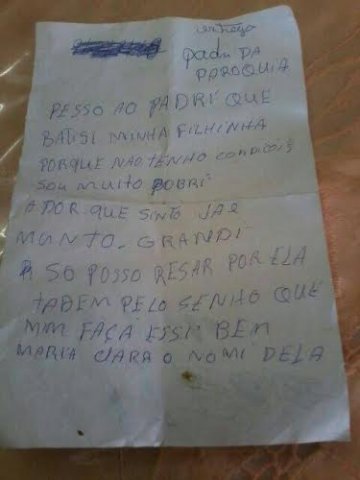 entrego
padri DA
PAROQUIA
PESSO AO PADRI QUE
BATISI MINHA FILHINHA
PORQUE NÃO TENHO CONDICÕIS
SOU MUITO POBRI
A DOR QUE SINTO JÁ É
MUNTO GRANDI
SO POSSO RESAR POR ELA
TADEM PELO SENHO QUE
MIM FAÇA ESSI BEM
MARIA CLARA O NOMI DELA